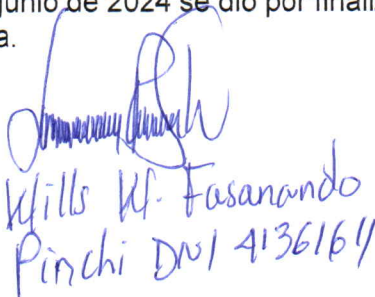 junio de 2024 se dio por finali
a.
Wills W. Fasanando
Pinchi DNI 41361611